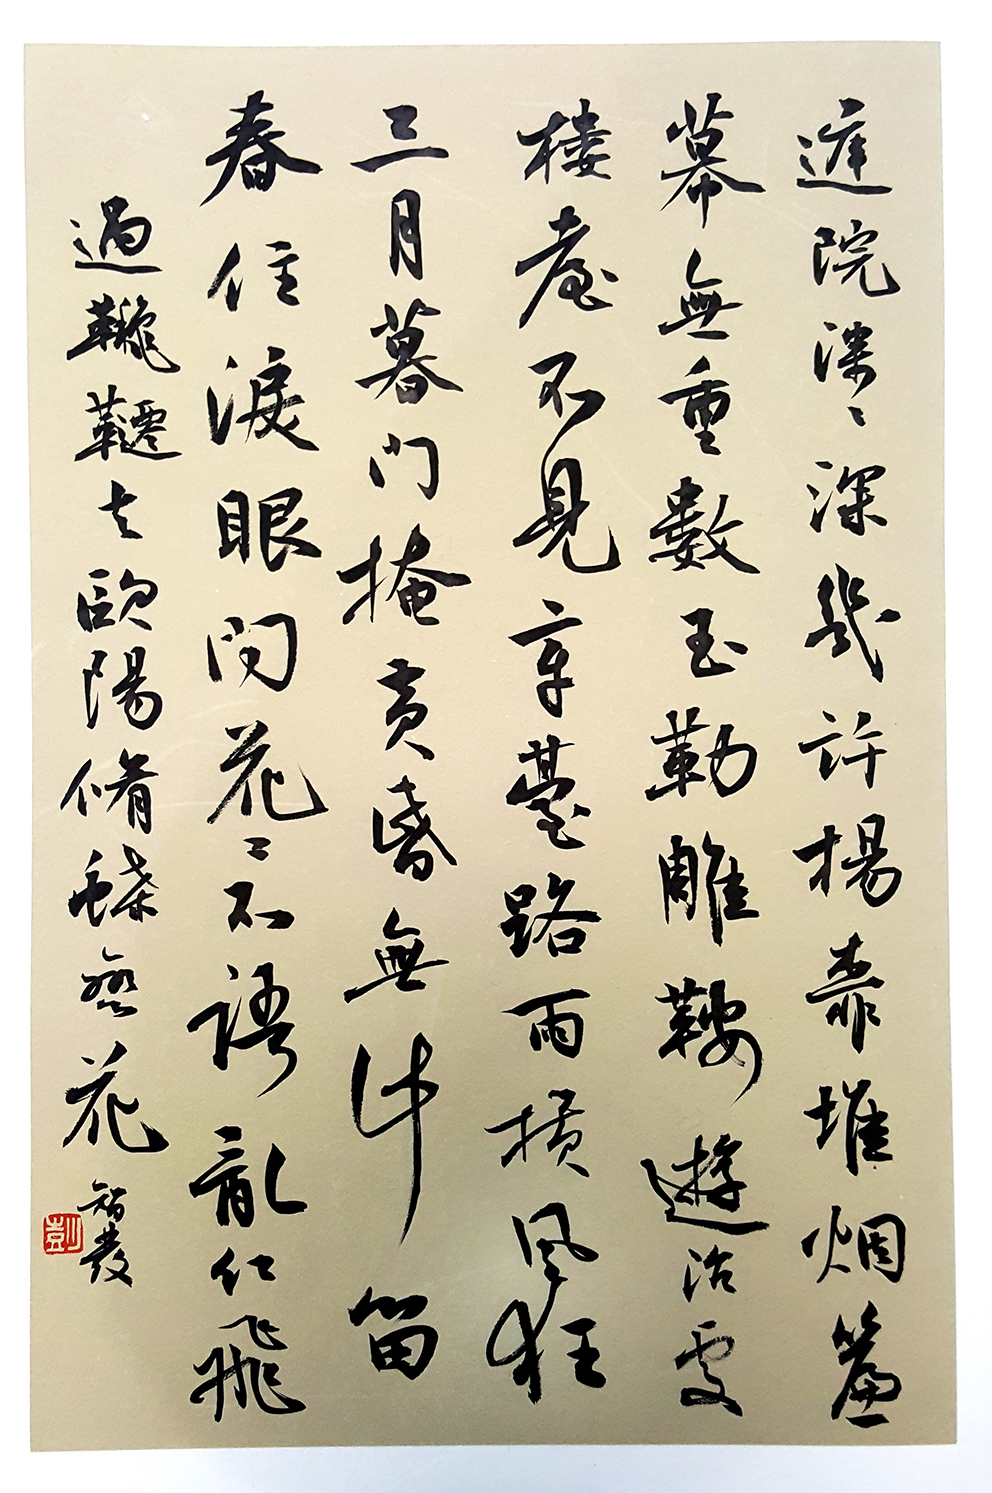 庭院深〻深幾許楊柳堆烟簾
幕無重數玉勒雕鞍遊冶處
樓高不見章臺路雨横風狂
三月暮門掩黄昏無計留
春住淚眼问花〻不語亂红飛
過鞦韆去歐陽脩蝶戀花
智發